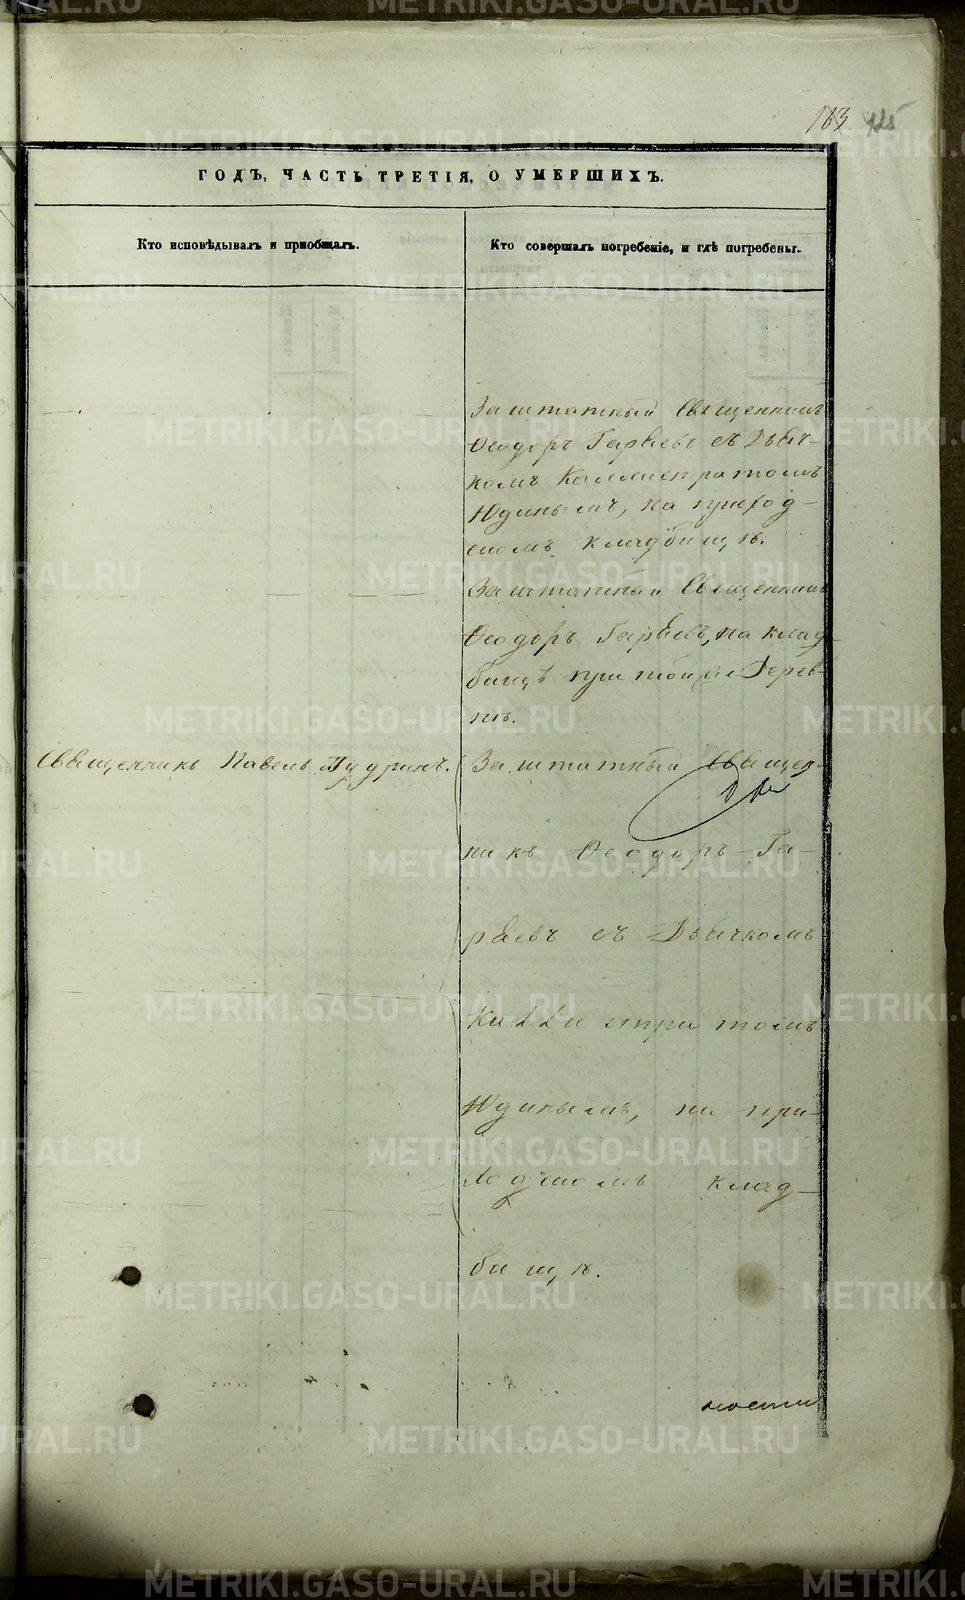 183 425
ГОДЪ, ЧАСТЬ ТРЕТІЯ, О УМЕРШИХЪ.
Кто исповѣдывалъ и пріобщалъ.
Кто совершалъ погребеніе, и гдѣ погребены.
Заштатный Священникъ
Ѳеодоръ Гаряевъ съ Дьяч-
комъ Каллистратомъ
Юдинымъ, на приход-
скомъ кладбищѣ.
Заштатный Священникъ
Ѳеодоръ Гаряевъ, на клад-
бищѣ при той же Дерев-
нѣ.
Священникъ Павелъ Пудринъ.
Заштатный Священ-
никъ Ѳеодоръ Га-
ряевъ съ Дьячкомъ
Каллистратомъ
Юдинымъ, на при-
ходскомъ клад-
бищѣ.
METRIKI.GASO-URAL.RU